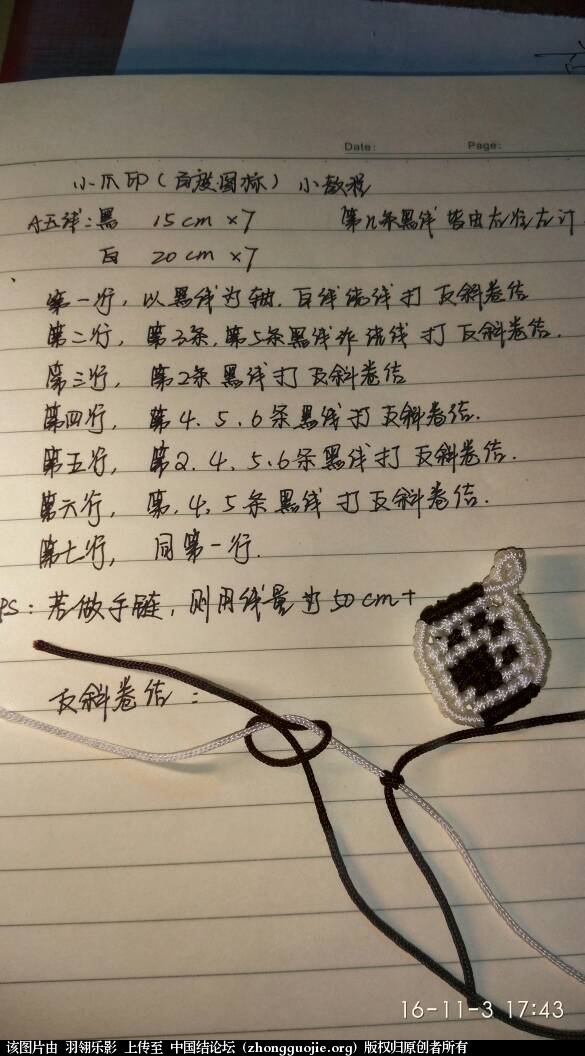 Date:
Page:
小爪印(百度图标)小教程
A五线:黑 15cm ×7 第几条黑线皆由左往右计
白 20cm ×7
第一行,以黑线为轴,白线绕线打反斜卷结
第二行,第3条,第5条黑线作绕线打反斜卷结.
第三行,第2条黑线打反斜卷结
第四行,第4、5、6条黑线打反斜卷结.
第五行,第2、4、5、6条黑线打反斜卷结.
第六行,第、4、5条黑线打反斜卷结.
第七行,同第一行.
PS:若做手链,则用线量为50cm+
反斜卷结:
16-11-3 17:43
该图片由 羽翎乐影 上传至 中国结论坛 (zhongguojie.org) 版权归原创者所有